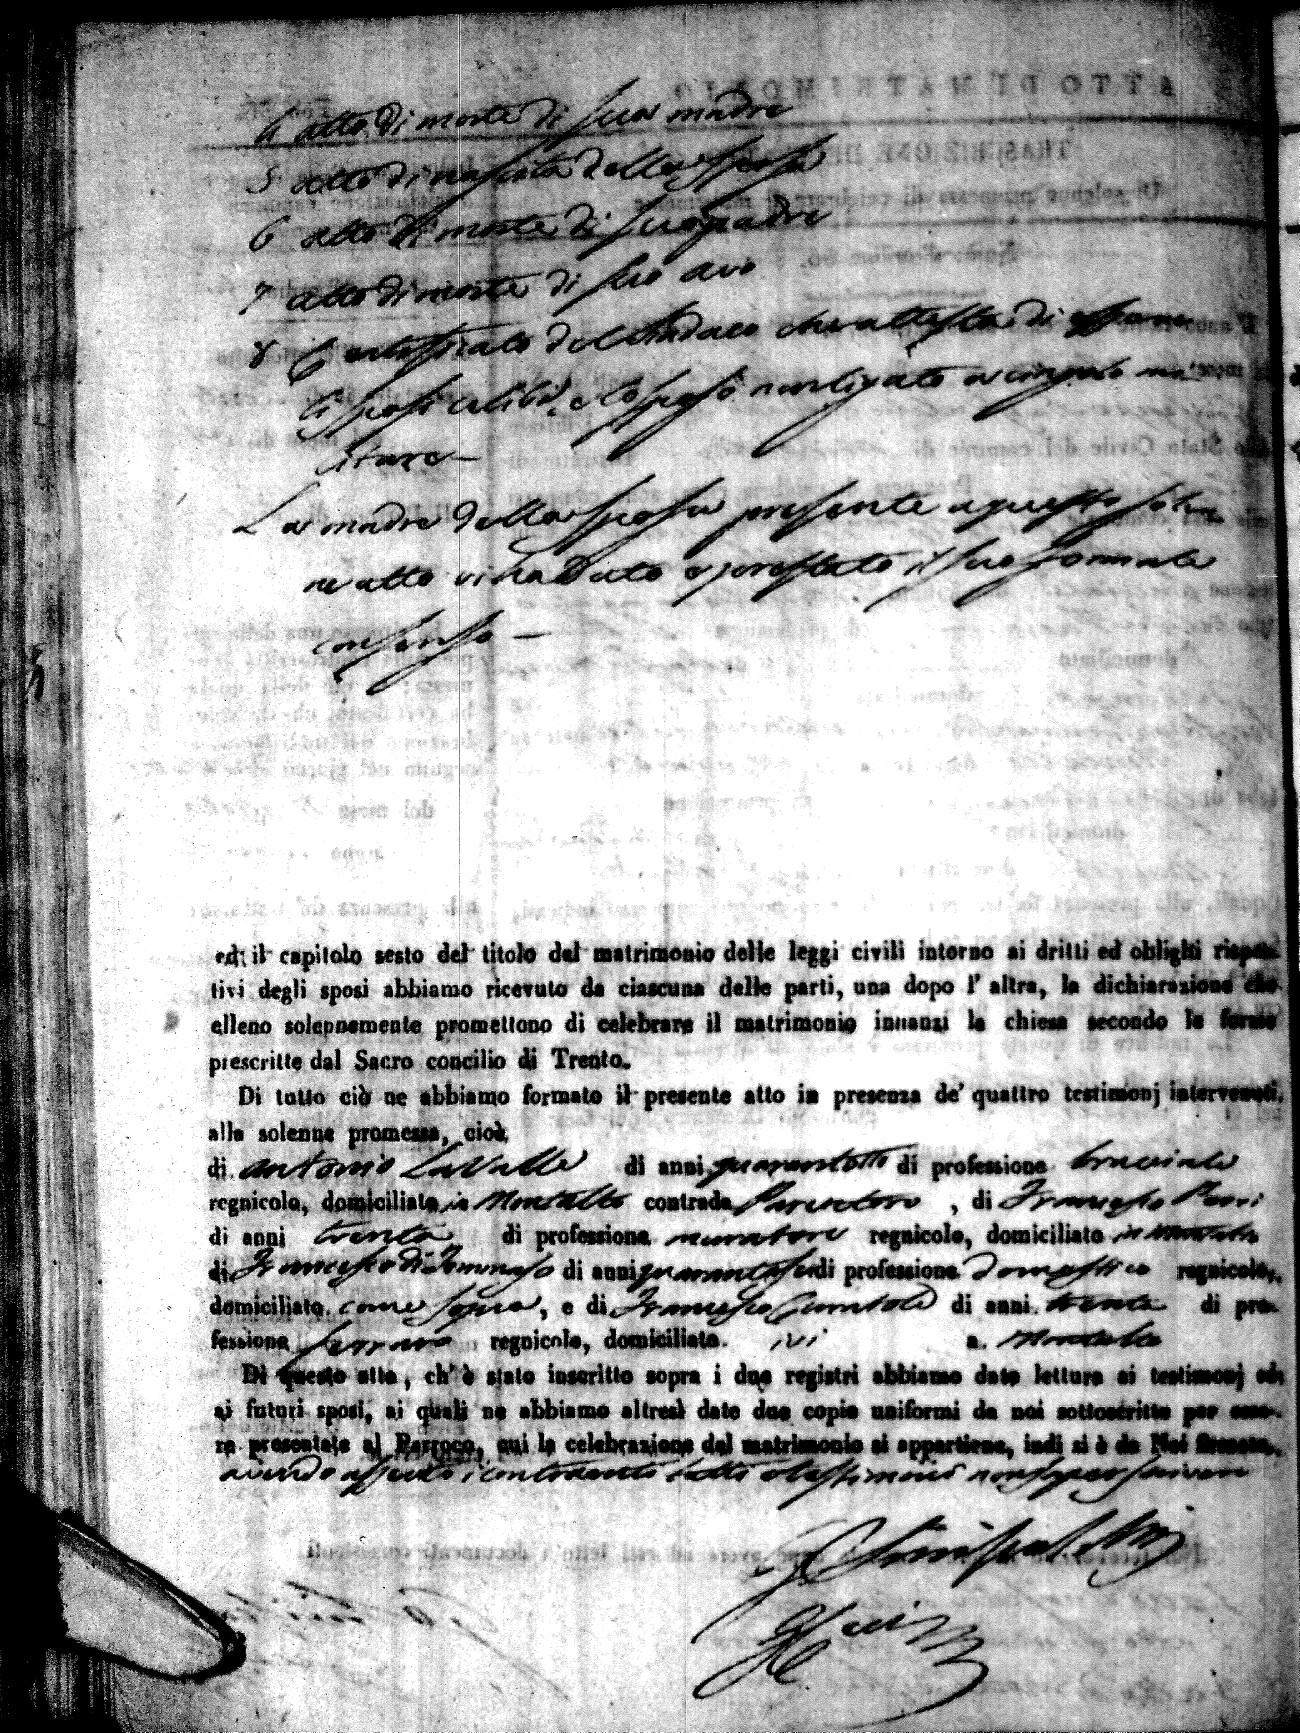 4 atto di morte di sua madre
5 atto di nascita della sposa
6 atto di morte di suo padre
7 atto di morte di suo avo
8 Certificato del Sindaco che attesta di essere
li sposi celibi, e lo sposo non ligato a cingolo mi-
litare —
La madre della sposa presente a questo solen
ne atto vi ha dato e prestato il suo formale
consenso —
ed il capitolo sesto del titolo del matrimonio delle leggi civili intorno ai dritti ed oblighi rispet-
tivi degli sposi abbiamo ricevuto da ciascuna delle parti, una dopo l' altra, la dichiarazione che
elleno solennemente promettono di celebrare il matrimonio innanzi la chiesa secondo le forme
prescritte dal Sacro concilio di Trento.
Di tutto ciò ne abbiamo formato il presente atto in presenza de' quattro testimonj intervenuti
alla solenne promessa, cioè
di Antonio LaValle di anni quarantotto di professione bracciale
regnicolo, domiciliato in Montalto contrada , di Francesco
di anni trenta di professione muratore regnicolo, domiciliato in Montalto
di Francesco di Tommaso di anni quarantasei di professione domestico regnicolo,
domiciliato come sopra, e di Francesco di anni trenta di pro-
fessione ferraro regnicolo, domiciliato ivi a. Montalto
Di questo atto, ch' è stato inscritto sopra i due registri abbiamo dato lettura ai testimonj ed
ai futuri sposi, ai quali ne abbiamo altresì date due copie uniformi da noi sottoscritte per esse-
re presentate al Parroco, cui la celebrazione del matrimonio si appartiene, indi si è da Noi firmato,
avendo asserito i contraenti tutti e testimoni non saper scrivere